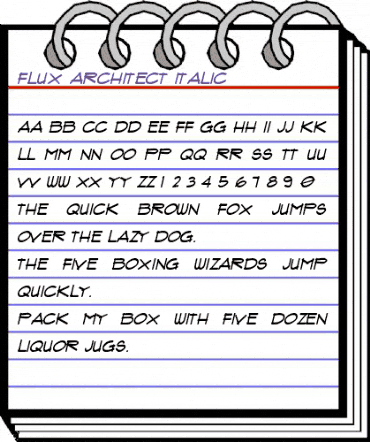 FLUX ARCHITECT ITALIC
AA BB CC DD EE FF GG HH II JJ KK
LL MM NN OO PP QQ RR SS TT UU
VV WW XX YY ZZ 1 2 3 4 5 6 7 8 9 0
THE QUICK BROWN FOX JUMPS
OVER THE LAZY DOG.
THE FIVE BOXING WIZARDS JUMP
QUICKLY.
PACK MY BOX WITH FIVE DOZEN
LIQUOR JUGS.